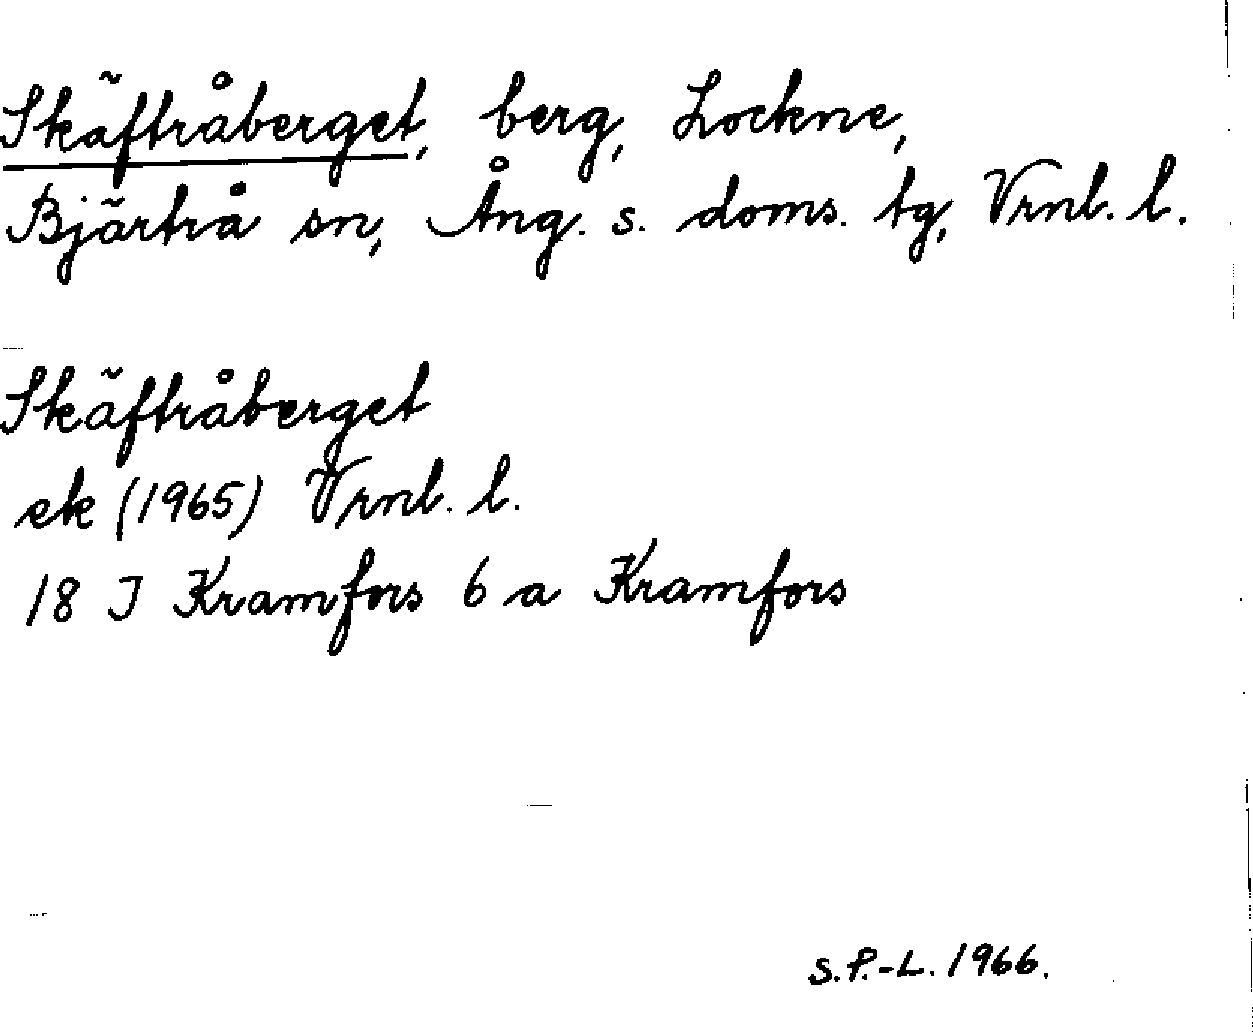 Skäftråberget, berg, Lockne,
Bjärtrå sn, Ång. s. doms. tg, Vrnl. l.
Skäftråberget
ek (1965) Vrnl. l.
18 I Kramfors 6 a Kramfors
S.P.-L. 1966.